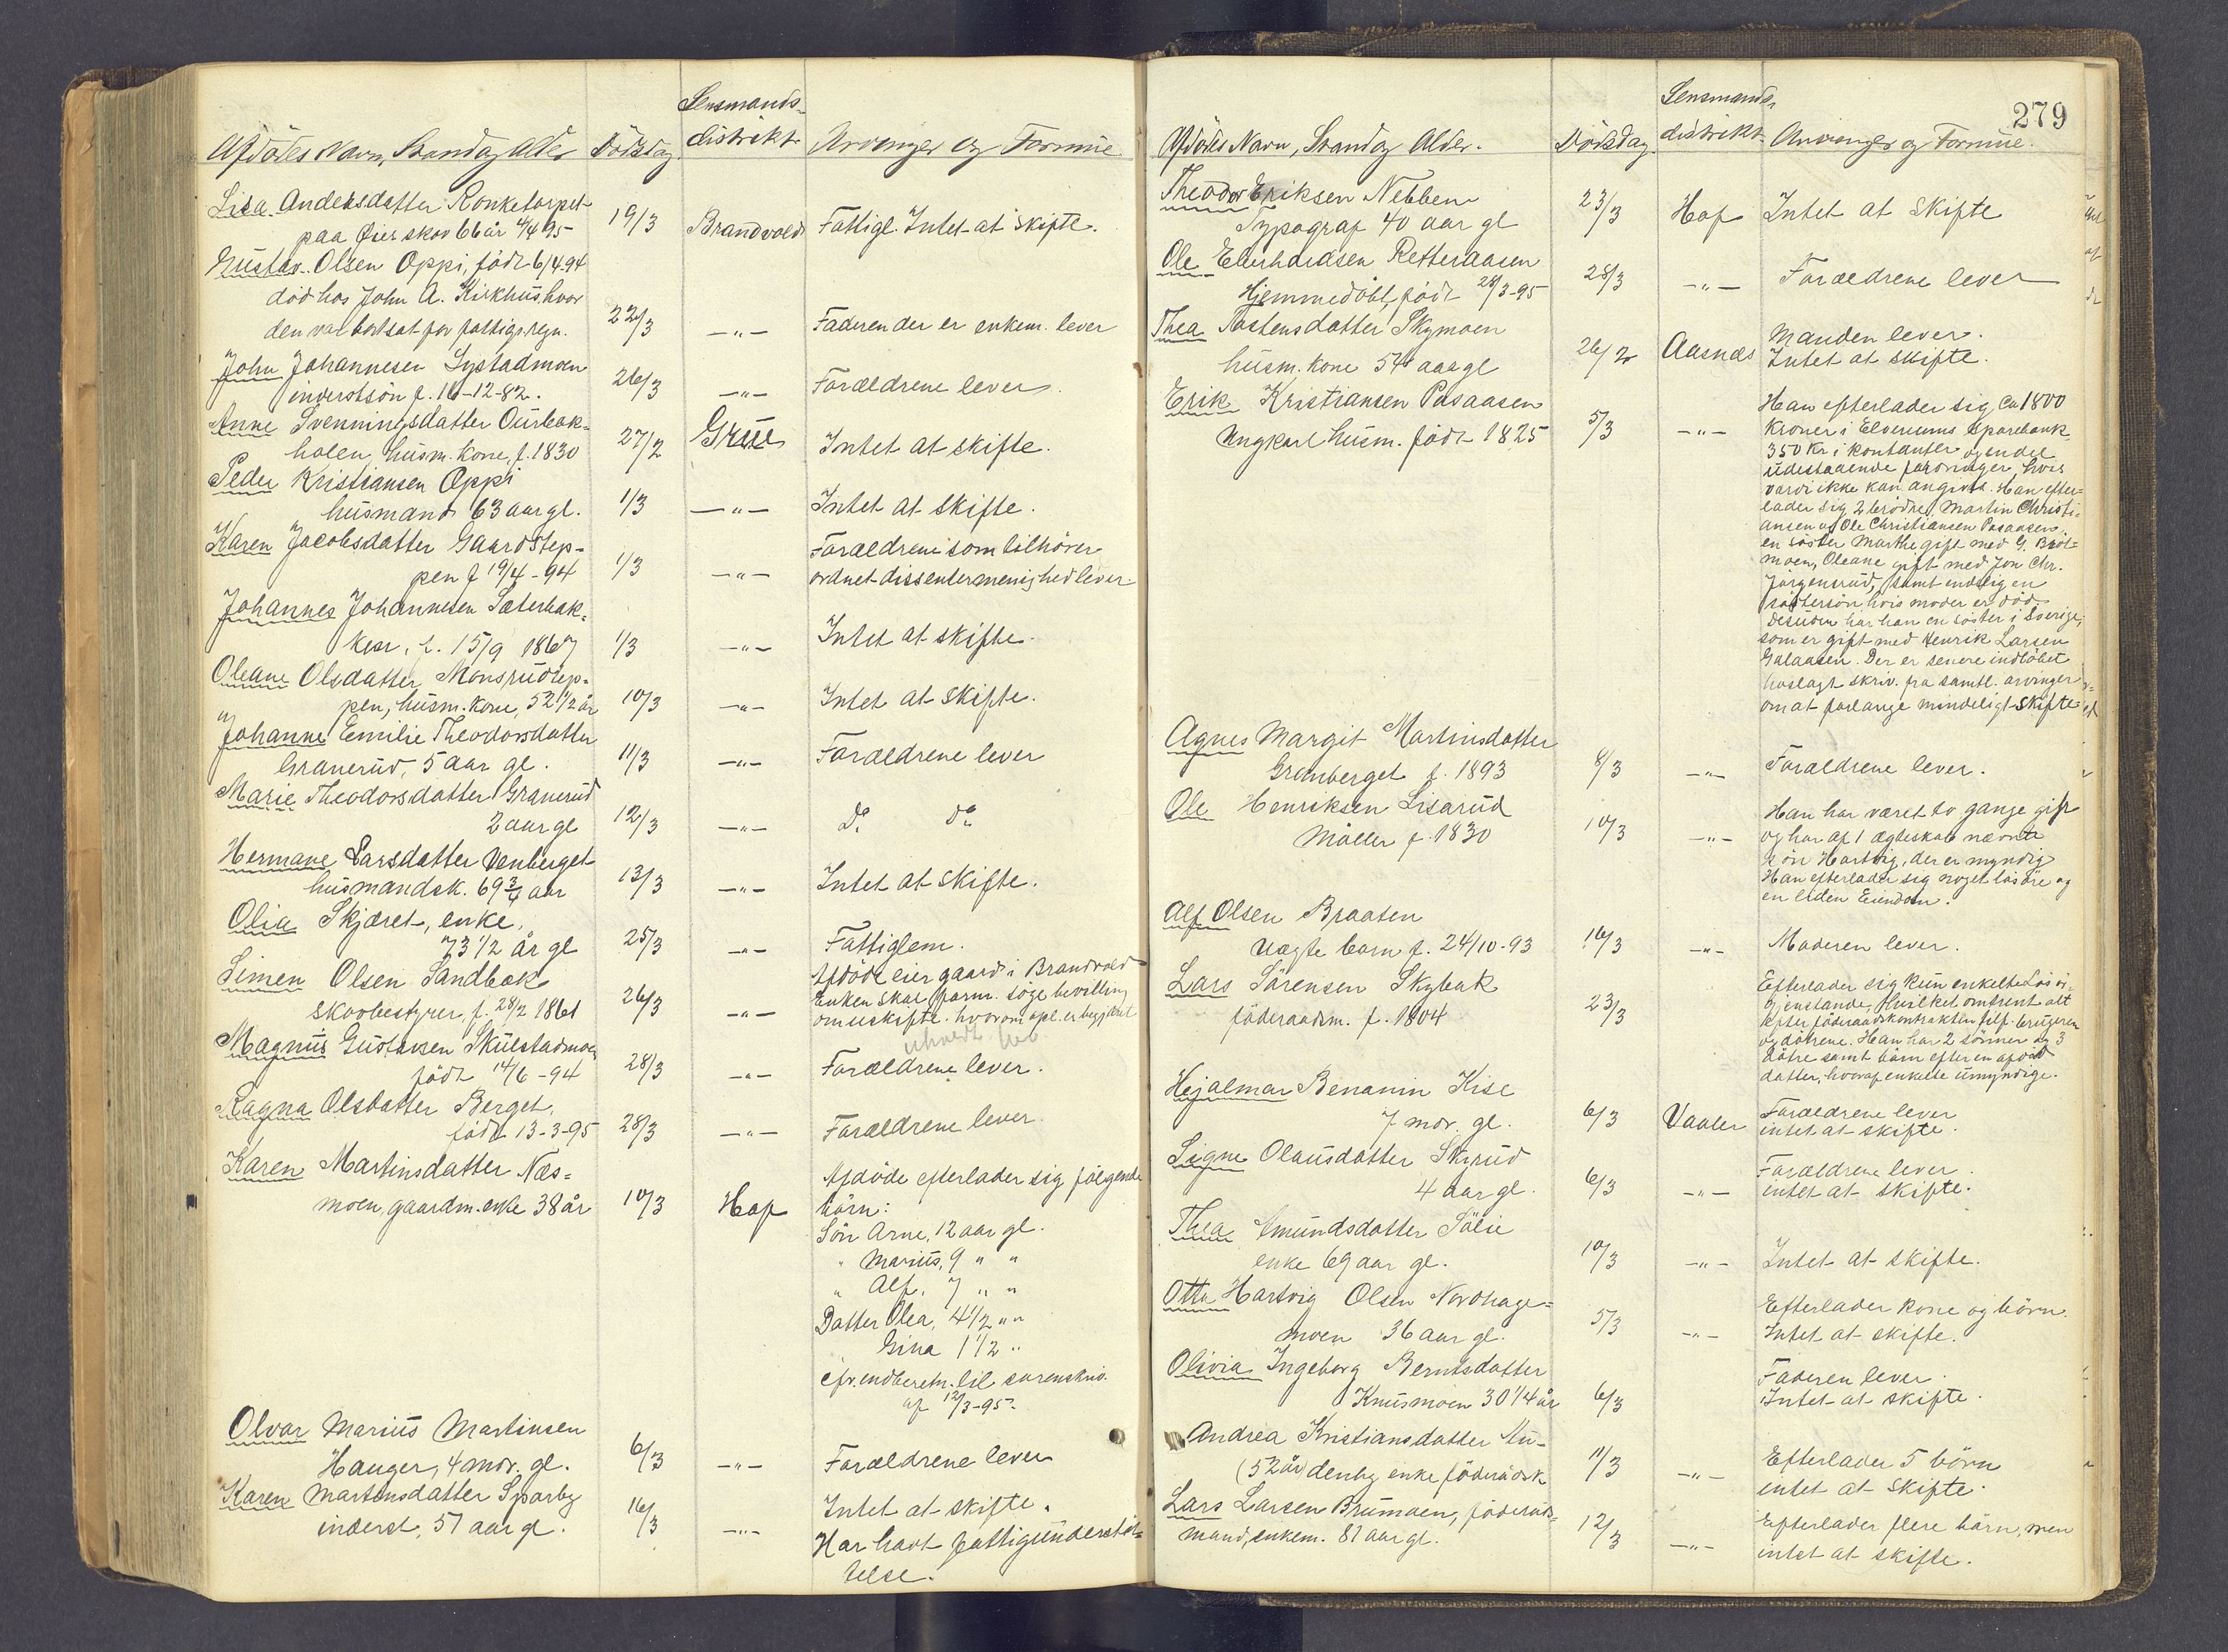 Afdødes Navn, Stand og Alder
Dødsdag
Lensmands-
distrikt
Arvinger og Formue
Lisa Andersdatter Ronketorpet
paa Øierskov 66 år 4/4 95
19/3
Brandvold
Fattigl. Intet at skifte.
Gustav Olsen Oppi, født 6/4-94
død hos John A. Kirkhus, hvor
den var bortsat for fattigv. regn.
22/3
-"-
Faderen der er enkem. lever
John Johannesen Systadmoen
inderstsøn f. 16-12-82.
26/3
-"-
Forældrene lever.
Anne Svenningsdatter Ourbak-
holen, husm. kone, f. 1830
27/2
Grue
Intet at skifte.
Peder Kristiansen Oppi
husmand 63 aar gl.
1/3
-"-
Intet at skifte.
Karen Jacobsdatter Gaardstep-
pen f 19/4-94
1/3
-"-
Forældrene som tilhører
ordnet dissentermenighed lever.
Johannes Johannesen Sæterbak-
ken, f. 15/9 1867
1/3
-"-
Intet at skifte.
Oleane Olsdatter Monsrudtep-
pen, husm. kone, 52 1/2 år
10/3
-"-
Intet at skifte.
Johanne Emilie Theodorsdatter
Granerud, 5 aar gl.
11/3
-"-
Forældrene lever
Marie Theodorsdatter Granerud
2 aar gl
12/3
-"-
Do Do
Hermane Larsdatter Venberget
husmandsk. 69 3/4 aar
13/3
-"-
Intet at skifte.
Olia Skjæret, enke,
73 1/2 år gl
25/3
-"-
Fattiglem.
Simen Olsen Sandbæk
skovbestyrer, f. 28/2 1861
26/3
-"-
Afdøde eier gaard i Brandvold
Enken skal form. søge bevilling
om uskifte. hvorom opl. er begjært
Magnus Gustavsen Skulstadmoen
født 14/6-94
28/3
-"-
Forældrene lever.
Ragna Olsdatter Berget,
født 13-3-95
28/3
-"-
Forældrene lever.
Karen Martinsdatter Næs-
moen, gaardm. enke 38 år
10/3
Hof
Afdøde efterlader sig følgende
børn:
Søn Arne, 12 aar gl.
" Marius, 9 " "
" Alf, 7 " "
Datter Olea, 4 1/2 " "
" Gina 1 1/2 "
cfr. endberetn. til sorenskriv.
af 12/3-95.
Olvar Marius Martinsen
Hanger, 4 mdr. gl.
6/3
-"-
Forældrene lever
Karen Martensdatter Sparby
inderst, 57 aar gl.
16/3
-"-
Intet at skifte.
Har havt fattigunderstøt-
telse.
279
Afdødes Navn, Stand og Alder.
Dødsdag.
Lensmands-
distrikt
Arvinger og Formue.
Theodor Eriksen Nebben
Typograf 40 aar gl
23/3
Hof
Intet at skifte
Ole Eberhardsen Retteraasen
Hjemmedøbt, født 28/3-95
28/3
-"-
Forældrene lever
Thea Tostensdatter Skymoen
husm. kone 54 aar gl
26/2
Aasnæs
Manden lever.
Intet at skifte.
Erik Kristiansen Pasaasen
Ungkarl husm. født 1825
5/3
-"-
Han efterlader sig ca 1800
kroner i Elverums Sparebank
350 Kr i kontanter og endel
udestaaende fordringer, hvis
værdi ikke kan angives. Han efter-
lader sig 2 brødre, Martin Christi-
ansen og Ole Christiansen Pasaasen,
en søster Marthe gift med G. Bröt-
moen, Oleane gift med Jon Chr.
Jørgensrud, samt endelig en
søstersøn, hvis moder er død.
Desuden har han en søster i Sverige,
som er gift med Henrik Larsen
Galaasen. Der er senere indløbet
hoslagt skriv. fra samtl. arvinger
om at forlange mindeligt skifte
Agnes Margit Martinsdatter
Granberget f. 1893
8/3
-"-
Forældrene lever.
Ole Henriksen Lisarud
Møller f. 1830
10/3
-"-
Han har været to gange gift
og har af 1 ægteskab nævnte
søn Hartvig, der er myndig
Han efterlader sig noget løsøre og
en liden Eiendom.
Alf Olsen Braaten
Uægte barn f. 24/10-93
16/3
-"-
Moderen lever.
Lars Sörensen Skybak
föderaadsm. f. 1804
23/3
Efterlader sig kun enkelte Løsöre-
gjenstande, hvilket omtrent alt
efter föderaadskontrakten tilf. brugeren
og døtrene. Han har 2 sönner og 3
døtre samt børn efter en afdød
datter, hvoraf enkelte umyndige.
Hejalmar Benanin Kise
7 mdr. gl.
6/3
Vaaler
Forældrene lever
intet at skifte.
Signe Olausdatter Skyrud
4 aar gl.
6/3
-"-
Forældrene lever.
intet at skifte.
Thea Amundsdatter Sölie
enke 69 aar gl.
10/3
-"-
Intet at skifte.
Otto Hartvig Olsen Nordhage-
moen 36 aar gl.
5/3
-"-
Efterlader kone og börn.
Intet at skifte.
Olivia Ingeborg Berntsdatter
Knusmoen 30 1/4 år
6/3
Faderen lever.
Intet at skifte.
Andrea Kristiansdatter Mu-
(52 år) denby enke föderådsk
11/3
-"-
Efterlader 5 börn
intet at skifte.
Lars Larsen Brumoen, föderåds-
mand, enkem. 81 aar gl.
12/3
-"-
Efterlader flere börn, men
intet at skifte.